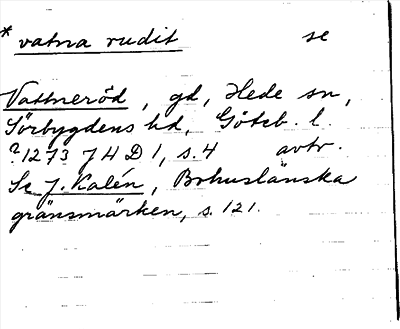 * vatna rudit se
Vattneröd, gd, Hede sn,
Sörbygdens hd, Göteb. l.
?1273 J H D 1, s. 4 avtr.
Se J. Kalén, Bohuslänska
gränsmärken, s. 121.